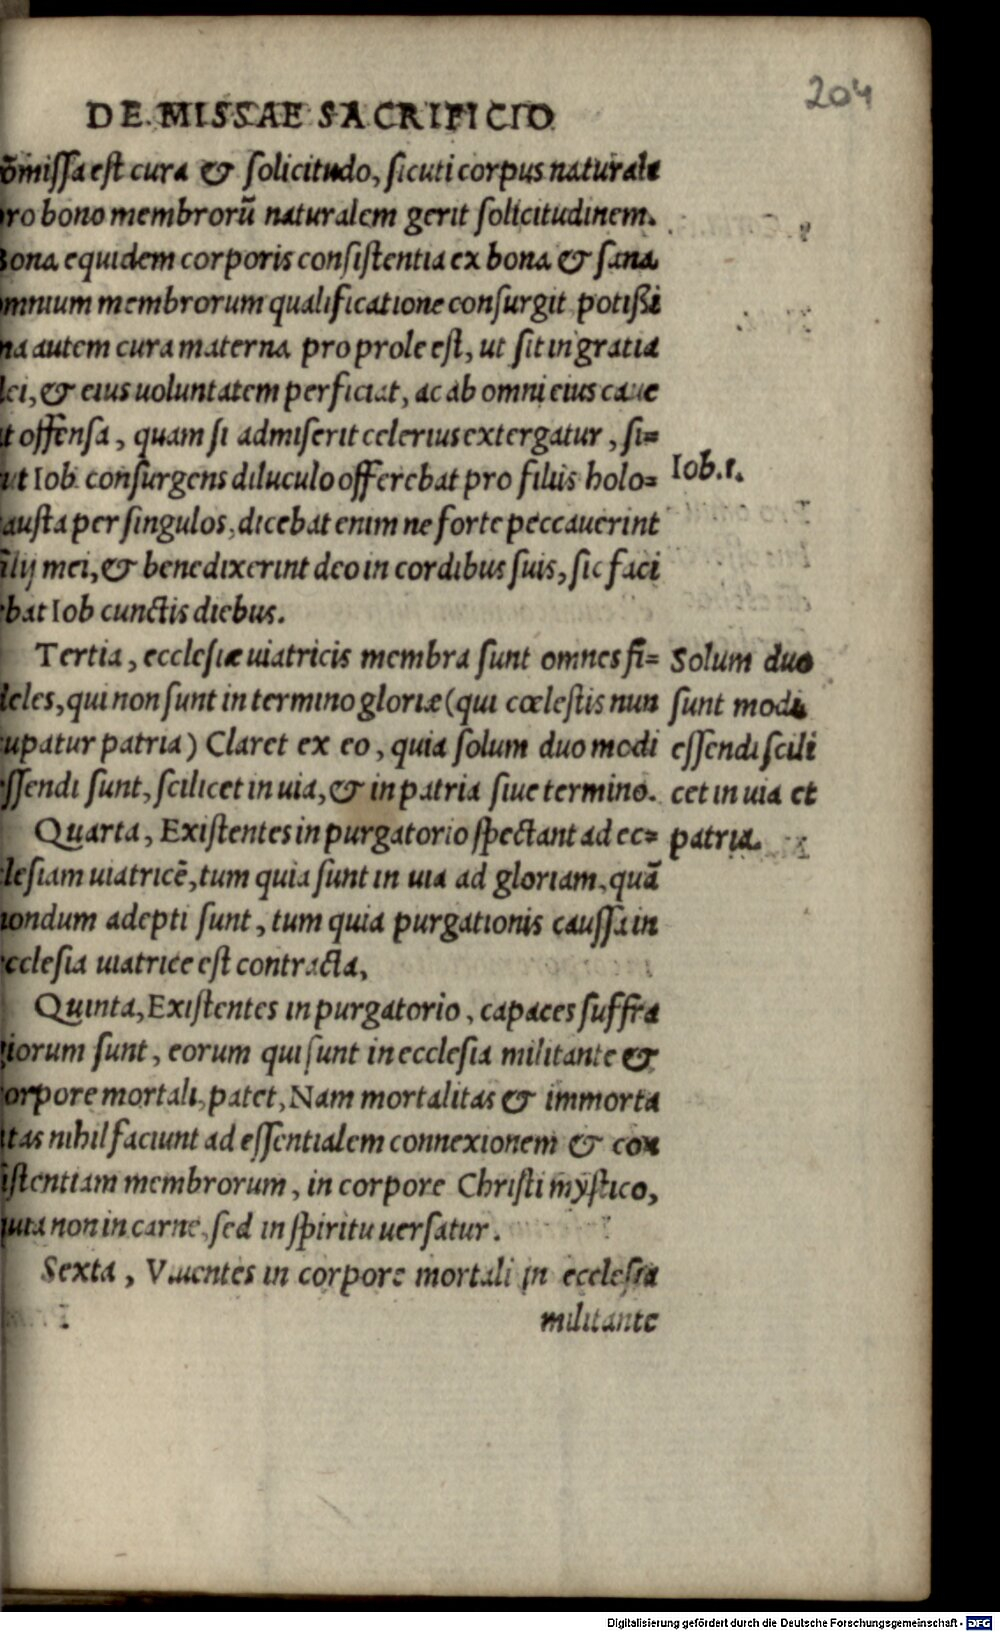 204
DE MISSAE SACRIFICIO
õmissa est cura & solicitudo, sicuti corpus naturale
ro bono membrorũ naturalem gerit solicitudinem.
ona equidem corporis consistentia ex bona & sana
mnium membrorum qualificatione consurgit potißi
na autem cura materna pro prole est, ut sit in gratia
ei, & eius uoluntatem perficiat, ac ab omni eius caue
t offensa, quam si admiserit celerius extergatur, si=
ut Iob consurgens diluculo offerebat pro filiis holo=
austa per singulos, dicebat enim ne forte peccauerint
ilij mei, & benedixerint deo in cordibus suis, sic faci
bat Iob cunctis diebus.
Iob.1.
Tertia, ecclesiæ uiatricis membra sunt omnes fi=
eles, qui non sunt in termino gloriæ (qui cœlestis nun
upatur patria) Claret ex eo, quia solum duo modi
ssendi sunt, scilicet in uia, & in patria siue termino.
Solum duo
sunt modi
essendi scili
cet in uia et
patria.
Quarta, Existentes in purgatorio spectant ad ec=
lesiam uiatricē, tum quia sunt in uia ad gloriam, quã
ondum adepti sunt, tum quia purgationis caussa in
cclesia uiatrice est contracta,
Quinta, Existentes in purgatorio, capaces suffra
iorum sunt, eorum qui sunt in ecclesia militante &
orpore mortali, patet, Nam mortalitas & immorta
itas nihil faciunt ad essentialem connexionem & con
istentiam membrorum, in corpore Christi mystico,
uia non in carne, sed in spiritu uersatur.
Sexta, Viuentes in corpore mortali in ecclesia
militante
Digitalisierung gefördert durch die Deutsche Forschungsgemeinschaft - DFG